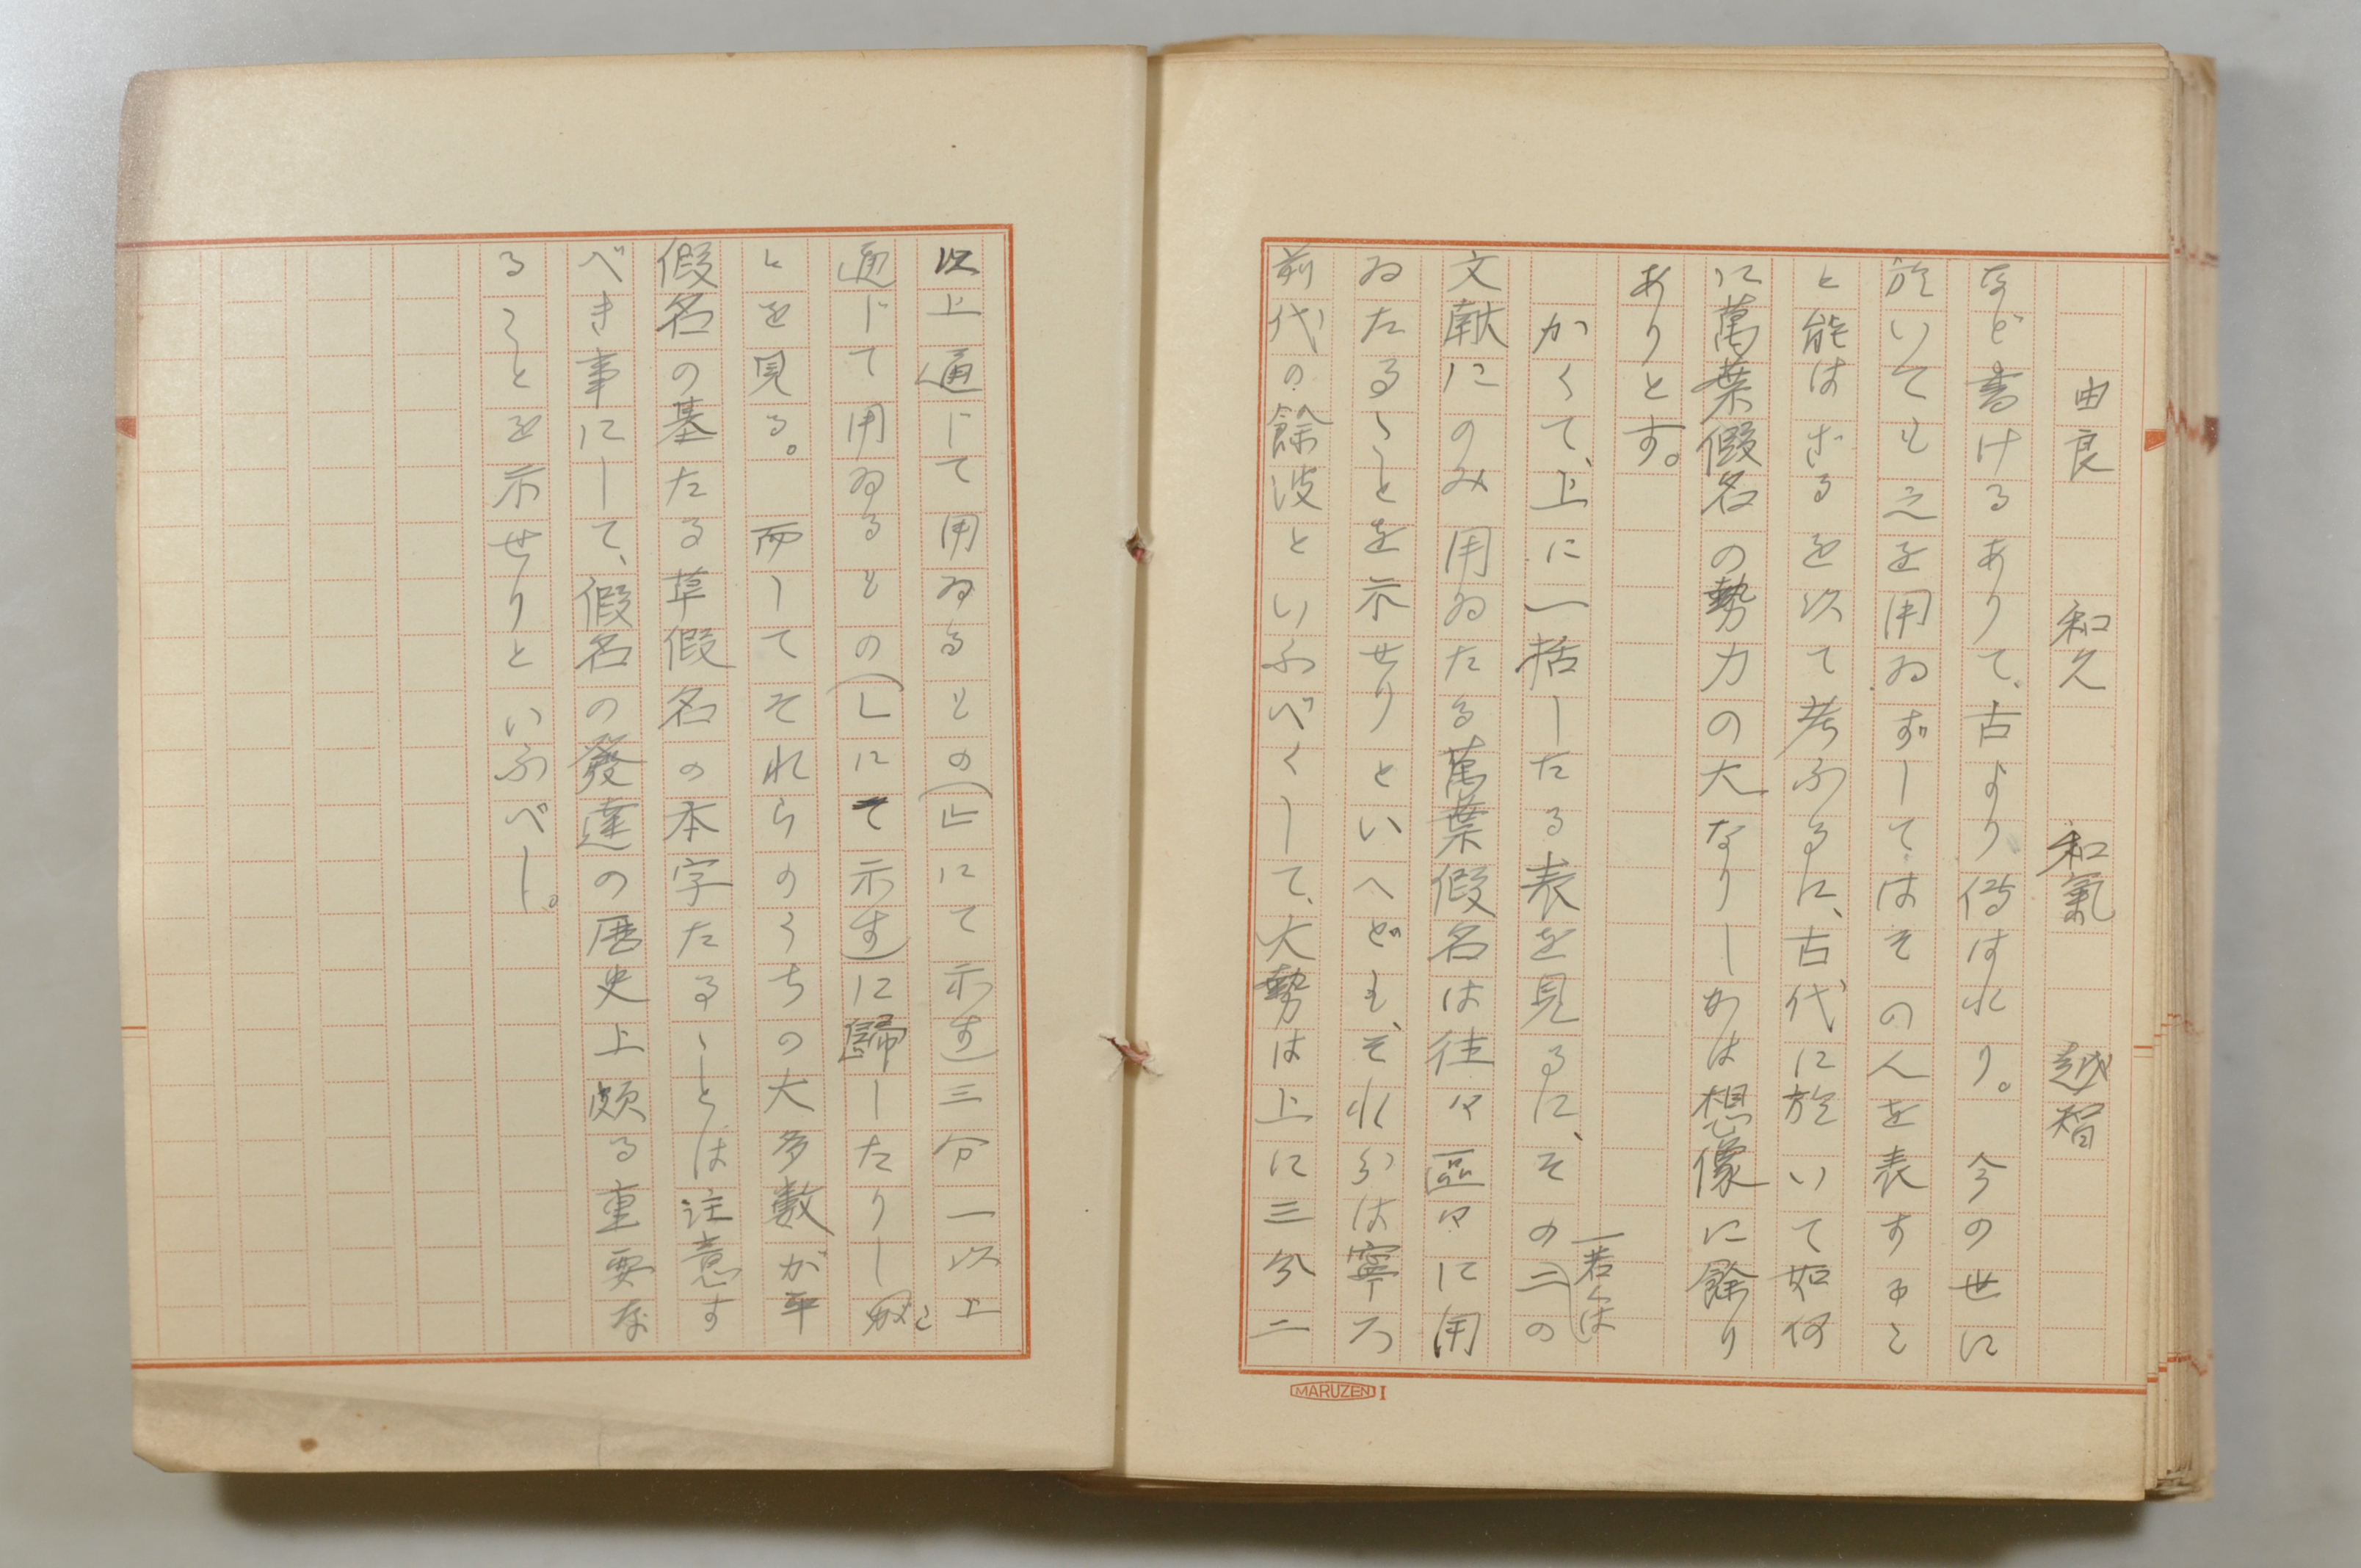 由良　和久　和氣　越智
など書けるありて、古より傳はれり。今の世に
於いても之を用ゐずしてはその人を表するこ
と能はざるを以て考ふるに、古代に於いて如何
に萬葉假名の勢力の大なりしかは想像に餘り
ありとす。
かくて、上に一括したる表を見るに、その一若くは二の
文献にのみ用ゐたる萬葉假名は往々區々に用
ゐたることを示せりといへども、それらは寧ろ
前代の餘波といふべくして、大勢は上に三分二
MARUZEN I
以上通じて用ゐるもの(=にて示す)三分一以上
通じて用ゐるもの(-にて示す)に歸したりしこ
とを見る。而してそれらのうちの大多數が平
假名の基たる草假名の本字たることは注意す
べき事にして、假名の發達の歴史上頗る重要な
ることを示せりといふべし。